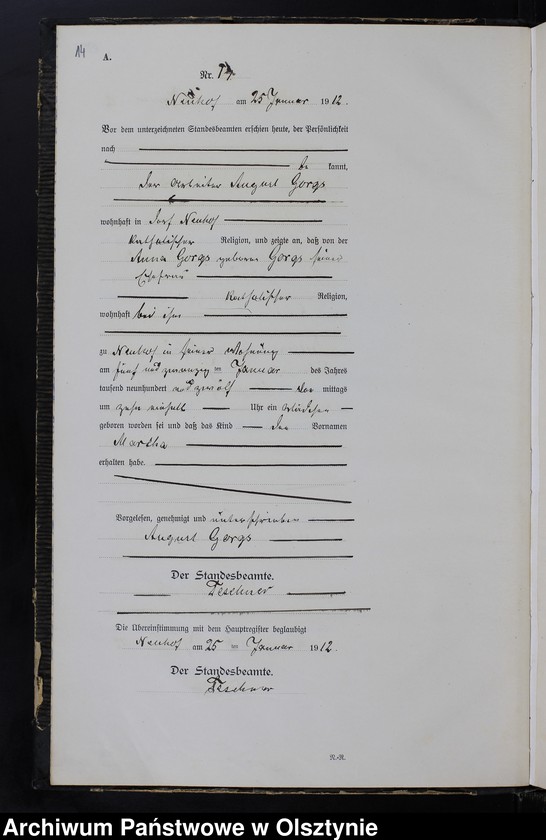 14
A.
Nr. 14
Neuhof am 25 Januar 1912.
Vor dem unterzeichneten Standesbeamten erschien heute, der Persönlichkeit
nach
be kannt,
der Arbeiter August Gorgs
wohnhaft in Dorf Neuhof
katholischer Religion, und zeigte an, daß von der
Anna Gorgs geborene Gorgs seiner
Ehefrau
katholischer Religion,
wohnhaft bei ihm
zu Neuhof in seiner Wohnung
am fünf und zwanzigsten Januar des Jahres
tausend neunhundert und zwölf Vor mittags
um zehn einhalb Uhr ein Mädchen
geboren worden sei und daß das Kind den Vornamen
Martha
erhalten habe.
Vorgelesen, genehmigt und unterschrieben
August Gorgs
Der Standesbeamte.
Teschner
Die Übereinstimmung mit dem Hauptregister beglaubigt
Neuhof am 25 ten Januar 1912.
Der Standesbeamte.
Teschner
N.-R.
Archiwum Państwowe w Olsztynie